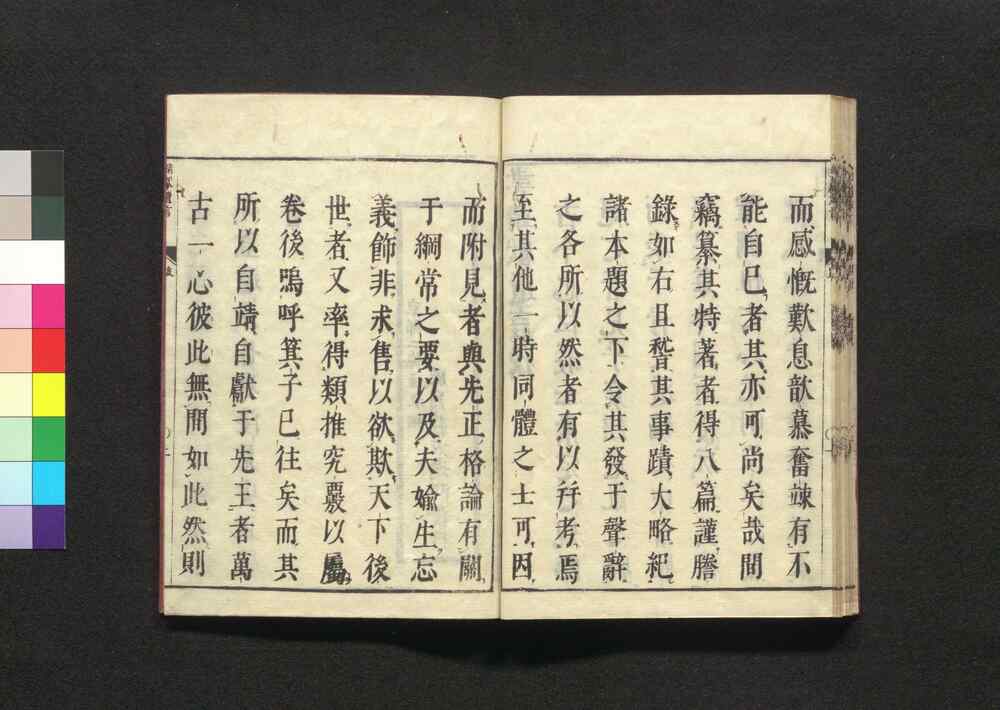 而感慨歎息歆慕奮竦有不
能自已者其亦可尚矣哉間
竊纂其特著者得八篇謹謄
錄如右且瞀其事蹟大略紀
諸本題之下令其發于聲辭
之各所以然者有以幷考焉
至其他一時同體之士可因
而附見者與先正格論有關
于綱常之要以及夫婾生忘
義飾非求售以欲欺天下後
世者又率得類推究覈以屬
卷後嗚呼箕子已往矣而其
所以自靖自獻于先王者萬
古一心彼此無間如此然則